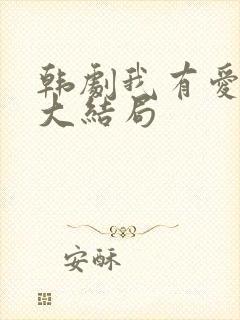 韩剧我有爱
大结局
安酥